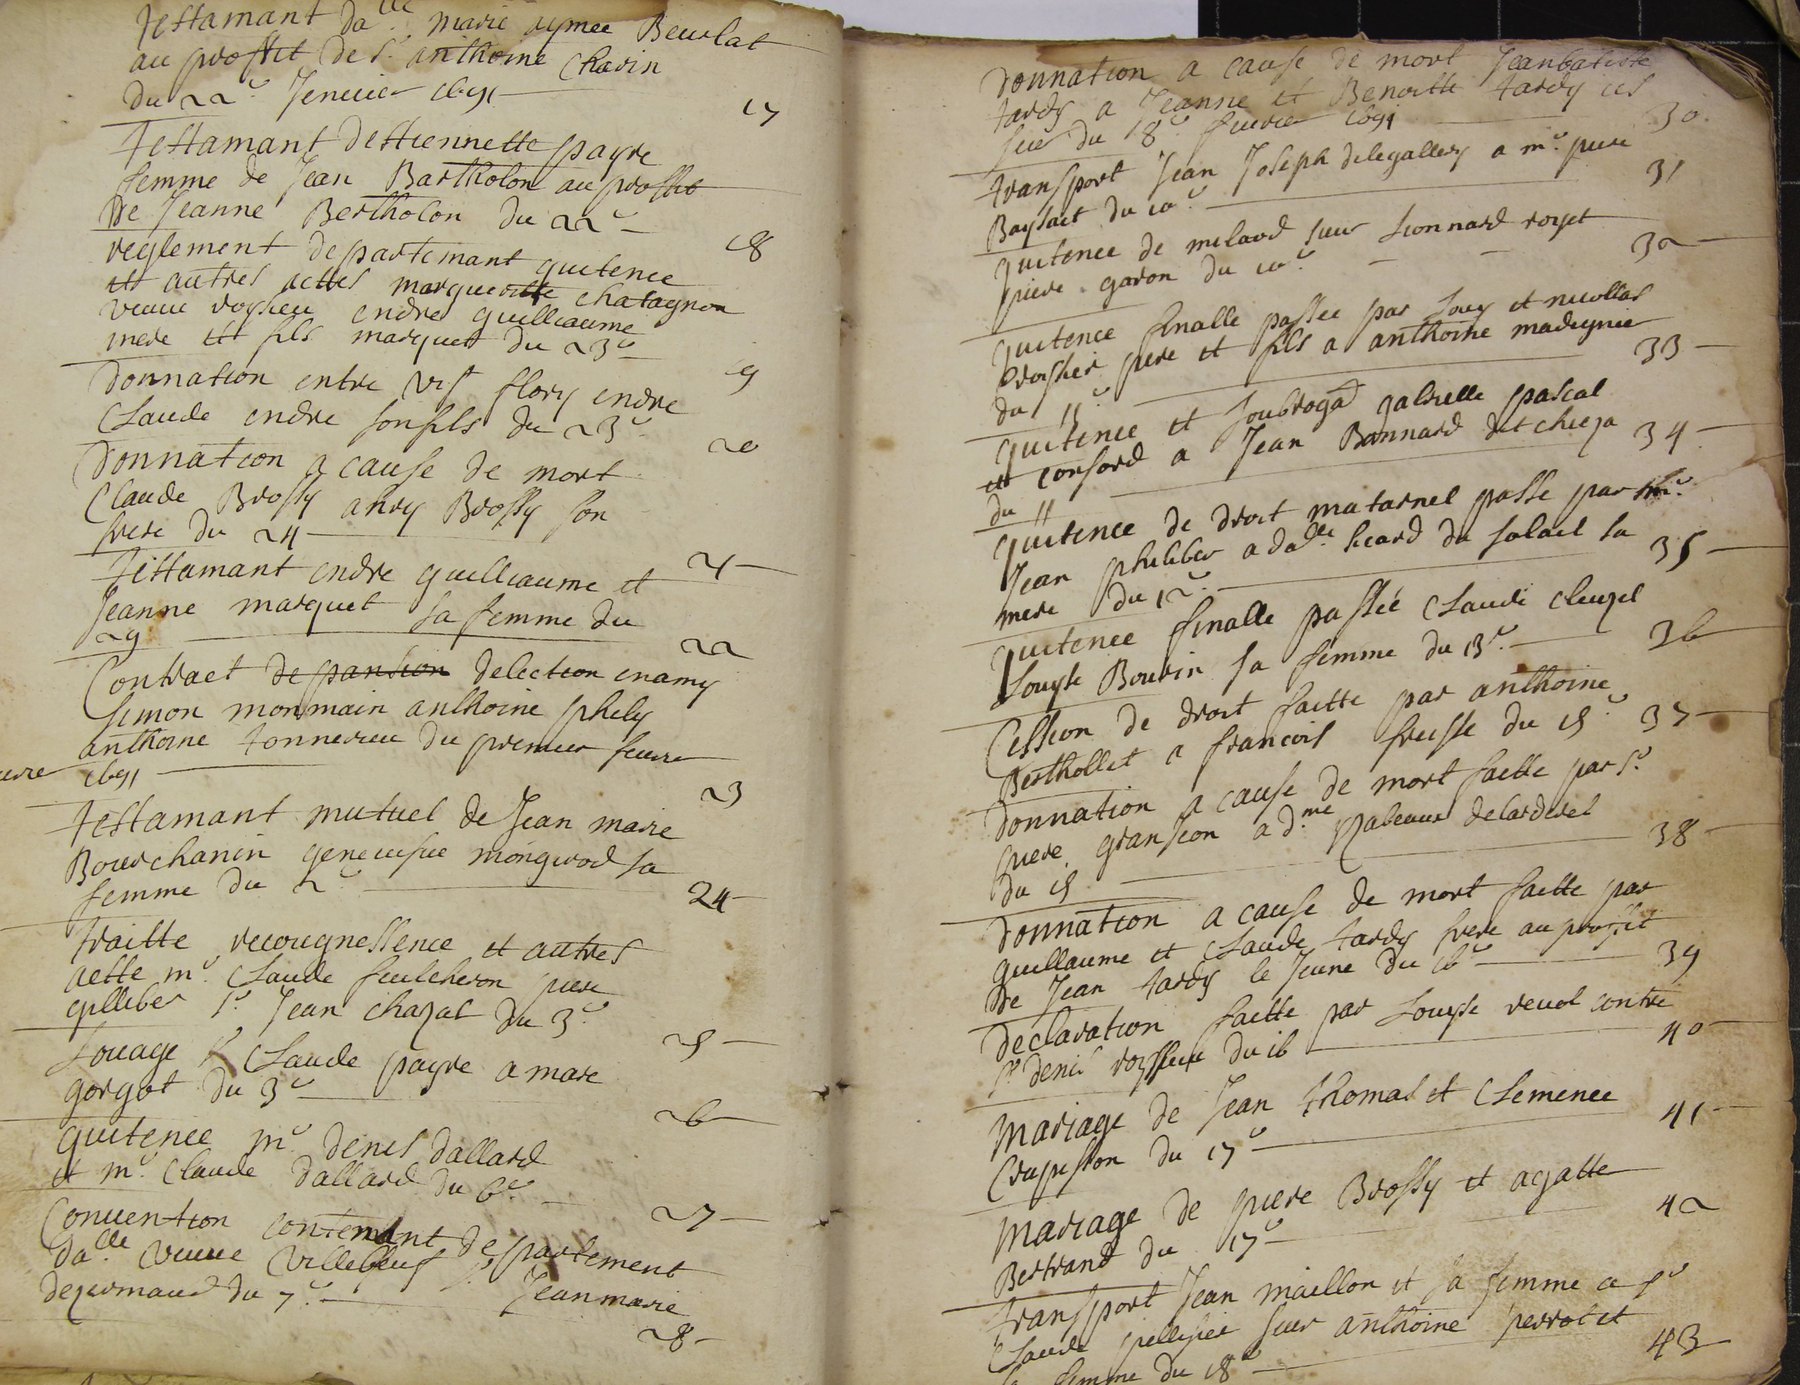 Testamant da.lle marie aymee Beurlat
au proffit de s.r anthoine Chavin
du 22.e Jenuier 1691
17
Testamant destiennette payre
femme de Jean Bartholon au proffit
de Jeanne Bertholon du 22.e
18
reglement departemant quitence
et autres actes marguerite chatagnon
veuue roysieu endre guilliaume
mere et fils marquet du 23.e
19
Donnation entre vif flory endre
Claude endre son fils du 23.e
20
Donnation a cause de mort
Claude Brossy anry Brossy son
frere du 24
21
Testamant endre guilliaume et
Jeanne marquet sa femme du
29
22
Contract de pansion delection enamy
simon monmain anthoine phely
anthoine tonnerieu du premier feurier
1691
23
Testamant mutuel de Jean marie
Bourchanin geneuisue mongirod sa
femme du 2.e
24
traitte recougnessence et autres
acte m.e Claude fulcheron piere
gilliber s.r Jean chazat du 3.e
25
Louage Claude payre a mare
gorgat du 3.e
26
Quitence m.e denis dallard
et m.e Claude dallard du 6.e
27
Conuention contenant departement
da.lle veuue Villebeuf s.r Jean marie
dezarmaud du 7.e
28
Donnation a cause de mort Jeanbatiste
tardy a Jeanne et Benoitte tardy ces
seur du 18.e feurier 1691
30
transport Jean Joseph delegallery a m.e piere
Baysait du 10.e
31
quitence de milaod sieur Lionnard royet
piere garon du 10.e
32
quitence finalle passee par Louy et nicollas
Crosier pere et fils a anthoine madignier
du 11.e
33
quitence et soubrogaõ gabrielle pascal
et consord a Jean Bonnard dit chieza
du 11
34
quitence de droit matarnel passe par m.e
Jean philiber a da.lle sicard du solail sa
mere du 12.e
35
quitence finalle passée Claude cleuzel
Louyse Bourin sa femme du 13.e
36
Cession de droit faitte par anthoine
Berthollet a francois freisse du 15.e
37
Donnation a cause de mort faitte par s.r
piere granjeon a d.me Izabeaux delarderel
du 15
38
Donnation a cause de mort faitte par
guillaume et Claude tardy frere au proffit
de Jean tardy le Jeune du 16.e
39
Declaration faitte par Louyse reuol contre
s.r denis roysieux du 16
40
Mariage de Jean thomas et Clemence
Crapisson du 17.e
41
Mariage de piere Brossy et agatte
Bertrand du 17.e
42
transport Jean maillon et sa femme a s.r
Claude pellisier sieur anthoine perrot et
sa femme du 18.e
43